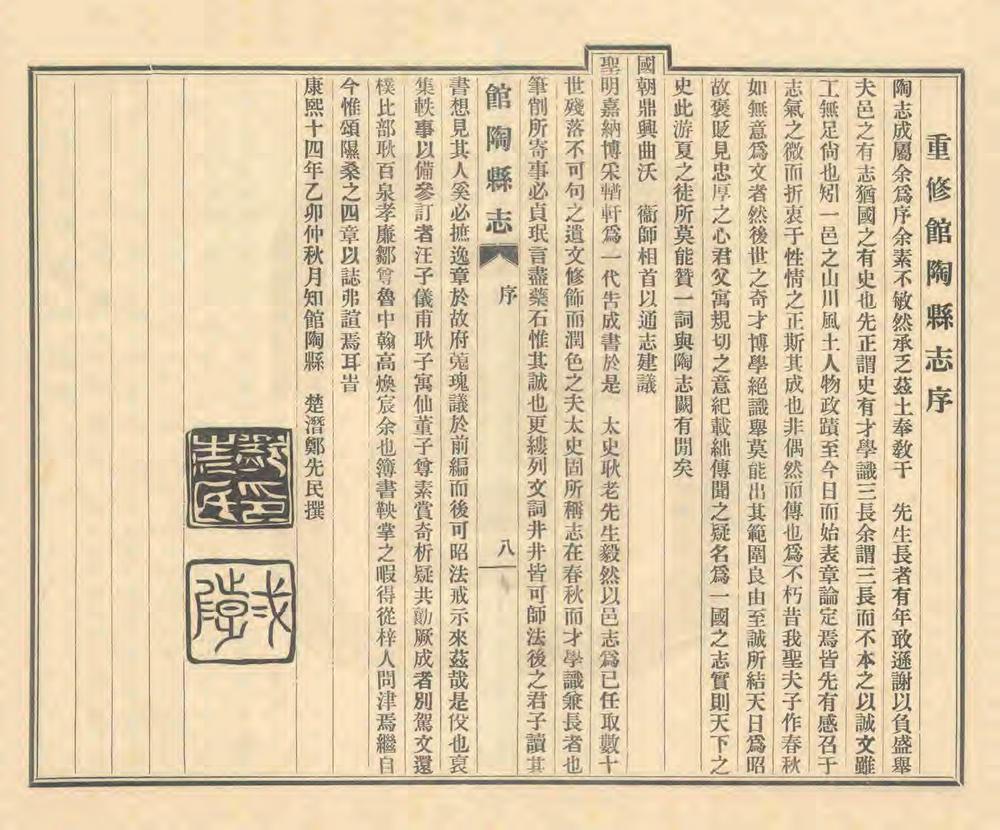 重修館陶縣志序
陶志成屬余爲序余素不敏然承乏茲土奉敎于　先生長者有年敢遜謝以負盛舉
夫邑之有志猶國之有史也先正謂史有才學識三長余謂三長而不本之以誠文雖
工無足尙也矧一邑之山川風土人物政蹟至今日而始表章論定焉皆先有感召于
志氣之微而折衷于性情之正斯其成也非偶然而傳也爲不朽昔我聖夫子作春秋
如無意爲文者然後世之奇才博學絕識舉莫能出其範圍良由至誠所結天日爲昭
故褒貶見忠厚之心君父寓規切之意紀載絀傳聞之疑名爲一國之志實則天下之
史此游夏之徒所莫能贊一詞與陶志闕有閒矣
國朝鼎興曲沃　衞師相首以通志建議
聖明嘉納博采輶軒爲一代吿成書於是　太史耿老先生毅然以邑志爲已任取數十
世殘落不可句之遺文修飾而潤色之夫太史固所稱志在春秋而才學識兼長者也
筆削所寄事必貞珉言盡藥石惟其誠也更縷列文詞井井皆可師法後之君子讀其
館陶縣志
序
八
書想見其人奚必摭逸章於故府蒐瑰議於前編而後可昭法戒示來茲哉是役也裒
集軼事以備參訂者汪子儀甫耿子寓仙董子尊素賞奇析疑共勷厥成者別駕文還
樸比部耿百泉孝廉鄒嶧魯中翰高煥宸余也簿書鞅掌之暇得從梓人問津焉繼自
今惟頌隰桑之四章以誌弗諠焉耳旹
康熙十四年乙卯仲秋月知館陶縣　楚潛鄭先民撰